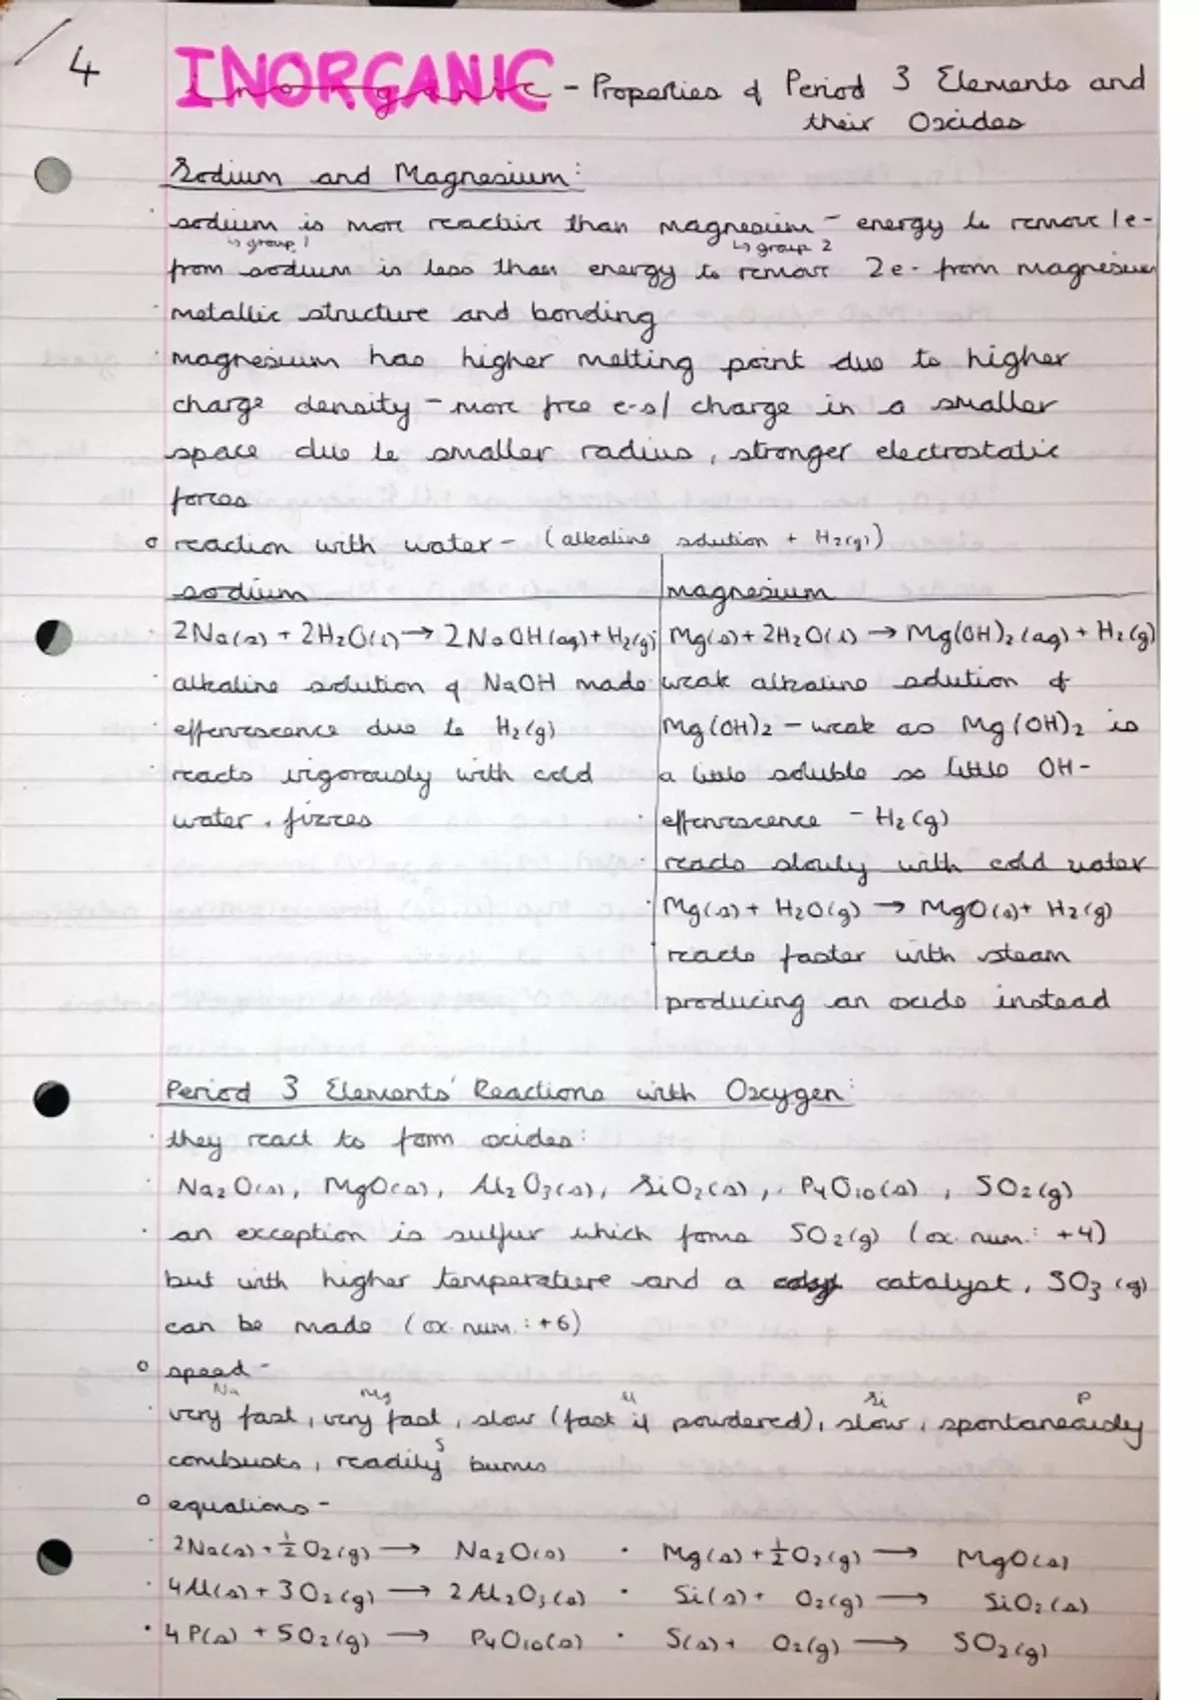 4
INORGANIC - Properties of Period 3 Elements and
inorganic
their Oxides
Sodium and Magnesium:
· sodium is more reactive than magnesium - energy to remove 1e-
↳ group 1 ↳ group 2
from sodium is less than energy to remove 2e- from magnesium
· metallic structure and bonding
· magnesium has higher melting point due to higher
charge density - more free e-s / charge in a smaller
space due to smaller radius, stronger electrostatic
forces
o reaction with water - (alkaline solution + H2(g))
sodium
· 2Na(s) + 2H2O(l) → 2NaOH(aq) + H2(g)
· alkaline solution of NaOH made
· effervescence due to H2(g)
· reacts vigorously with cold
water, fizzes
magnesium
Mg(s) + 2H2O(l) → Mg(OH)2(aq) + H2(g)
weak alkaline solution of
Mg(OH)2 - weak as Mg(OH)2 is
a little soluble so little OH-
· effervescence - H2(g)
· reacts slowly with cold water
· Mg(s) + H2O(g) → MgO(s) + H2(g)
· reacts faster with steam
producing an oxide instead
Period 3 Elements' Reactions with Oxygen:
· they react to form oxides:
· Na2O(s), MgO(s), Al2O3(s), SiO2(s), P4O10(s), SO2(g)
· an exception is sulfur which forms SO2(g) (ox. num.: +4)
but with higher temperature and a catalyst, SO3(g)
can be made (ox. num.: +6)
o speed -
Na Mg Al Si P
· very fast, very fast, slow (fast if powdered), slow, spontaneously
S
combusts, readily burns
o equations -
· 2Na(s) + ½O2(g) → Na2O(s) · Mg(s) + ½O2(g) → MgO(s)
· 4Al(s) + 3O2(g) → 2Al2O3(s) · Si(s) + O2(g) → SiO2(s)
· 4P(s) + 5O2(g) → P4O10(s) · S(s) + O2(g) → SO2(g)